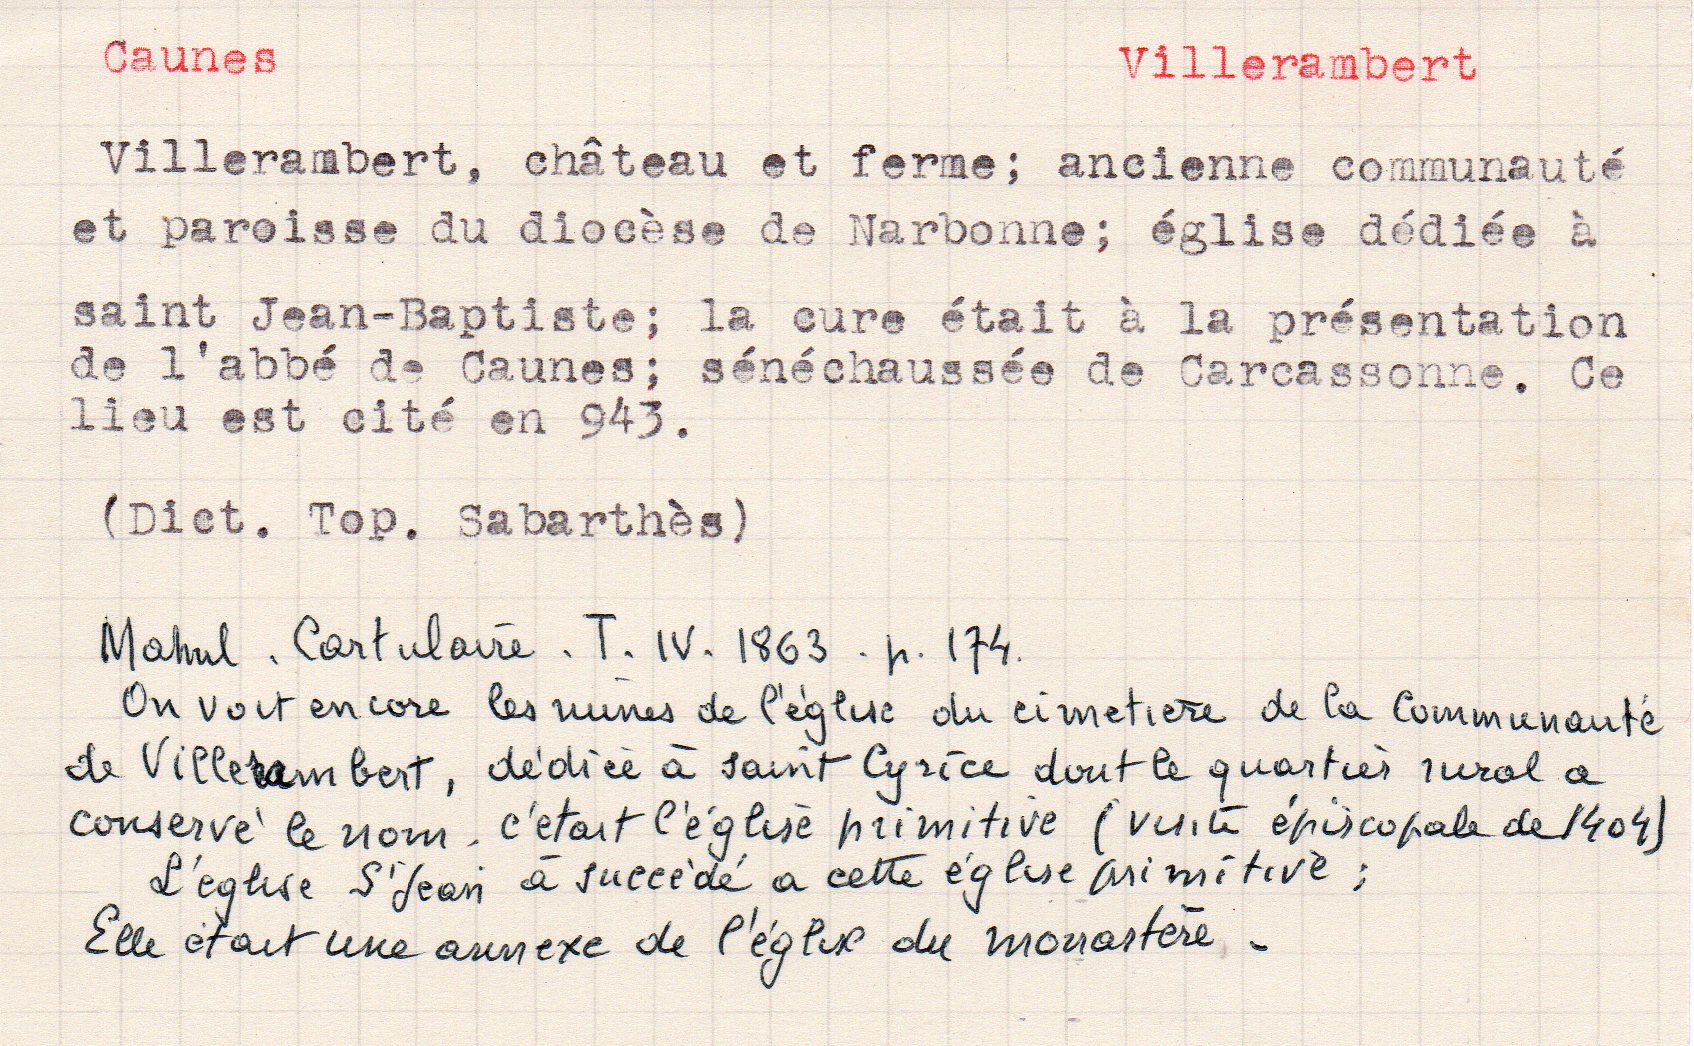 Caunes Villerambert
Villerambert, château et ferme; ancienne communauté
et paroisse du diocèse de Narbonne; église dédiée à
saint Jean-Baptiste; la cure était à la présentation
de l'abbé de Caunes; sénéchaussée de Carcassonne. Ce
lieu est cité en 943.
(Dict. Top. Sabarthès)
Mahul. Cartulaire. T. IV. 1863. p. 174.
On voit encore les ruines de l'église du cimetière de la Communauté
de Villerambert, dédiée à saint Cyrice dont le quartier rural a
conservé le nom. c'était l'église primitive (visite épiscopale de 1404)
L'église St Jean à succédé a cette église primitive;
Elle était une annexe de l'église du monastère.